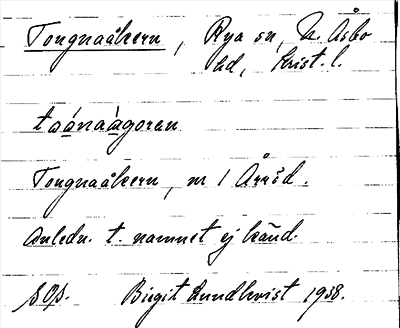 Tongnaåkern, Rya sn, N. Åsbo
hd, Krist. l.
Tongnaåkern, nr 1 Årröd.
Anledn. t. namnet ej känd.
Birgit Lundkvist 1938.